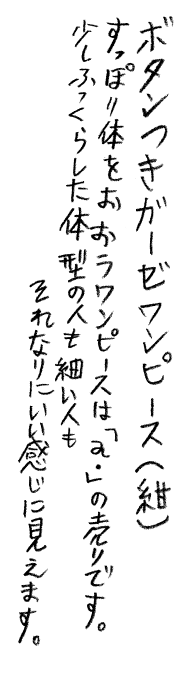 ボタンつきガーゼワンピース(紺)
すっぽり体をおおうワンピースは「a.」の売りです。
少しふっくらした体型の人も細い人も
それなりにいい感じに見えます。